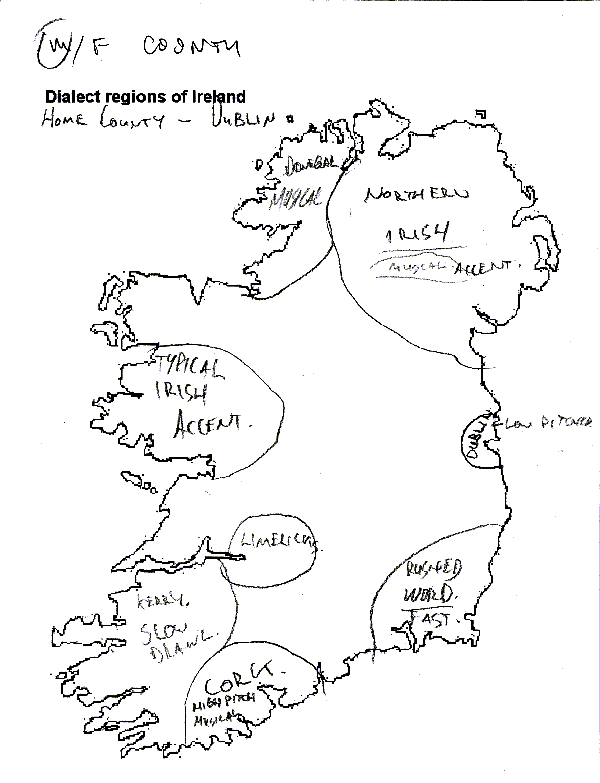 M/F COUNTY
Dialect regions of Ireland
HOME COUNTY - DUBLIN
DONEGAL
MUSICAL
NORTHERN
IRISH
MUSICAL ACCENT.
TYPICAL
IRISH
ACCENT.
DUBLIN
LOW PITCHED
LIMERICK
RUSHED
WORD.
FAST.
KERRY.
SLOW
DRAWL.
CORK.
HIGH PITCH
MUSICAL